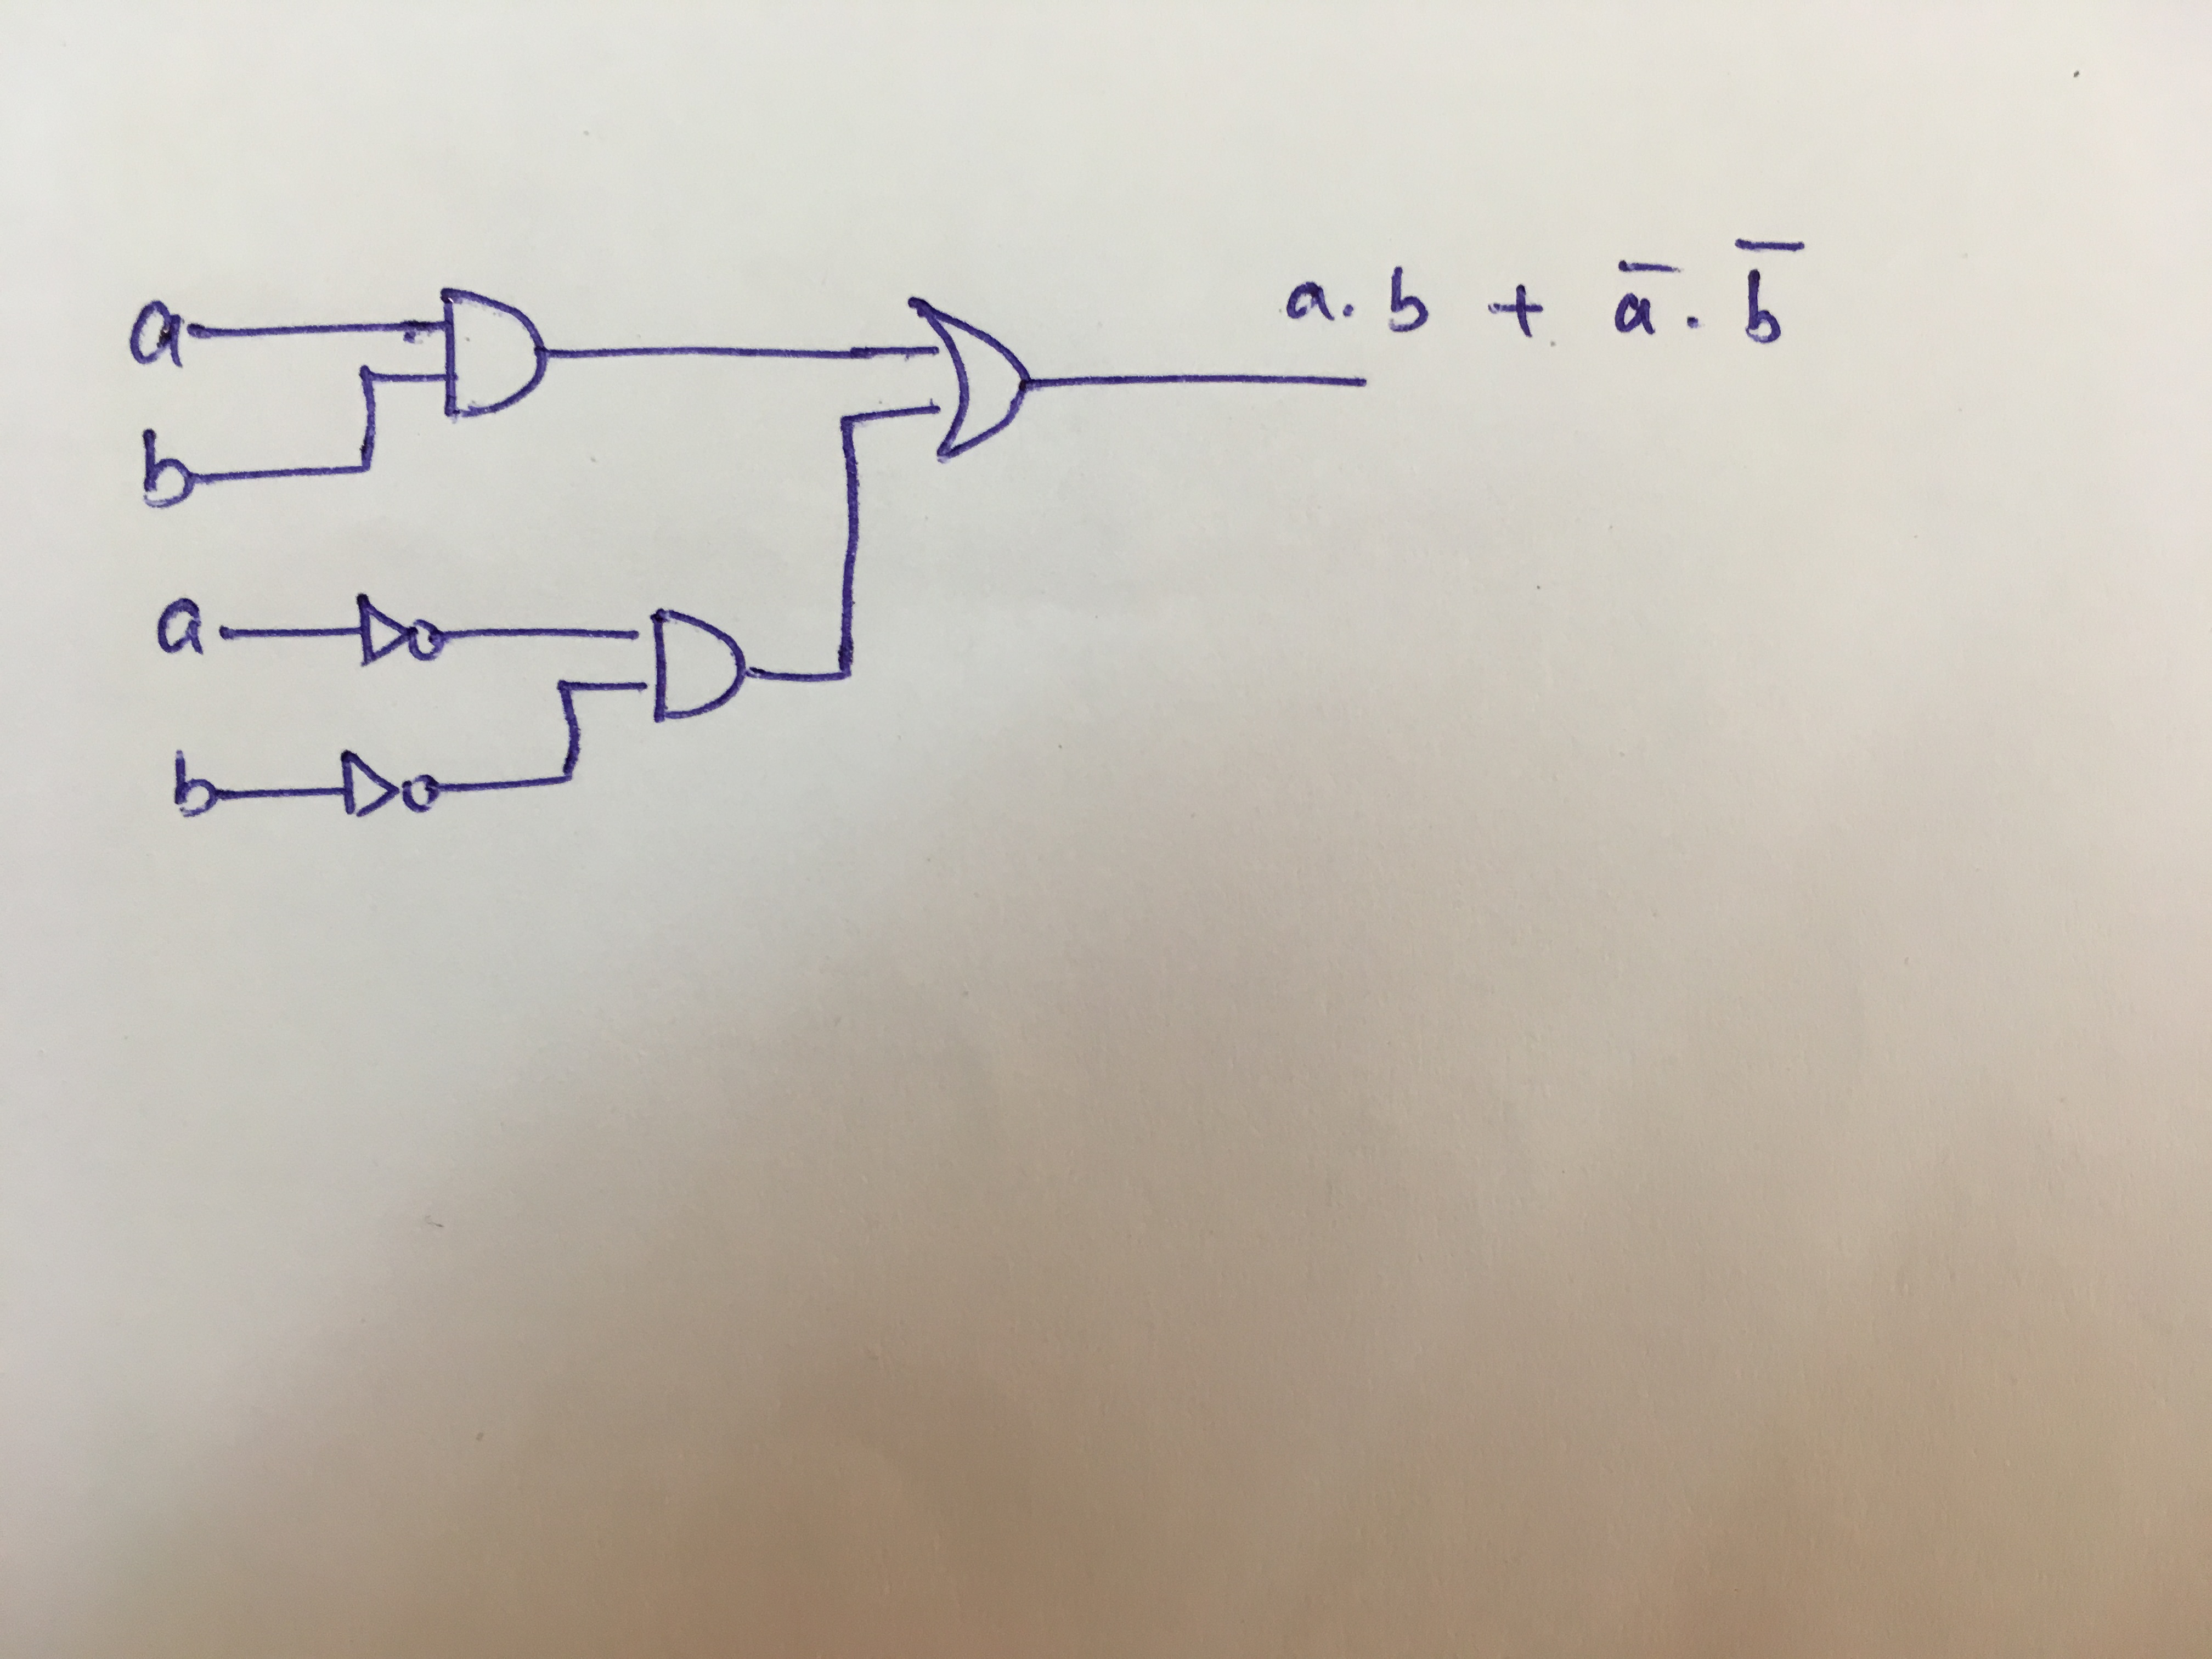 a
b
a
b
a.b + a̅.b̅